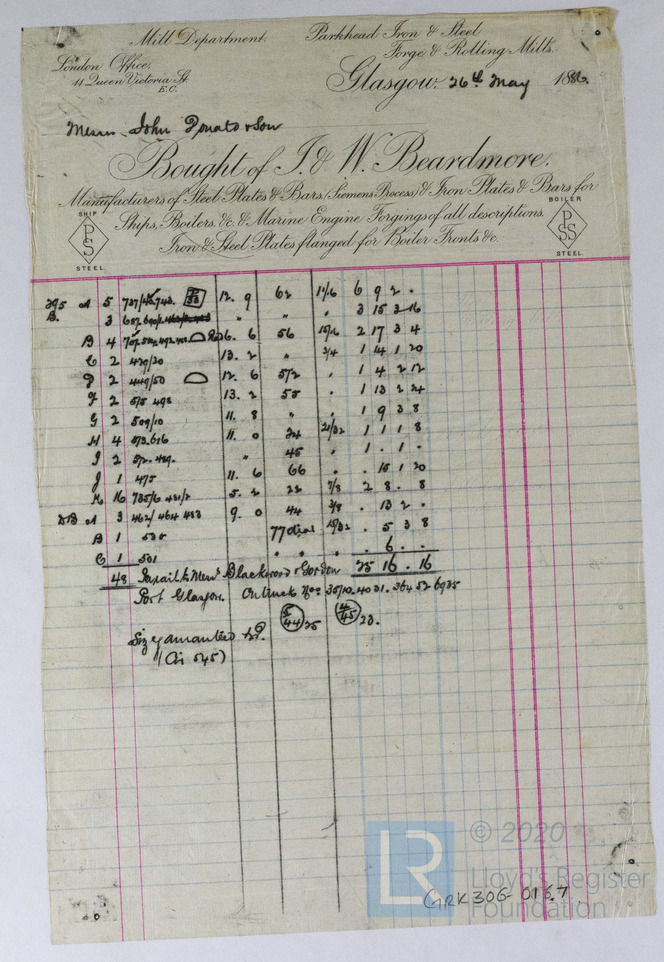 Mill Department.
Parkhead Iron & Steel
Forge & Rolling Mills.
London Office,
11 Queen Victoria St.
E.C.
Glasgow, 26th May 1886.
Messrs John & Son
Bought of I. & W. Beardmore.
Manufacturers of Steel Plates & Bars, (Siemens Process) & Iron Plates & Bars for
Ships, Boilers, &c. & Marine Engine Forgings of all descriptions.
Iron & Steel Plates flanged for Boiler Fronts &c.
SHIP
PS
STEEL.
BOILER
PSS
STEEL.
395 A 5 737/42.743. 12. 9 62 11/16 6 9 2 .
B. 3 " " " 3 15 3 16
B 4 6. 6 56 15/16 2 17 3 4
C 2 429/30 13. 2 " 3/4 1 14 1 20
D 2 449/50 12. 6 57½ . 1 4 2 12
F 2 515 498 13. 2 55 . 1 13 2 24
G 2 509/10 11. 8 " " 1 9 3 8
H 4 573.616 11. 0 34 21/32 1 1 1 8
I 2 572. 489. " 45 . 1 . 1 .
J 1 475 11. 6 66 . . 15 1 20
K 16 735/6 481/2 5. 2 22 7/8 2 8 . 8
DB A 3 462/464 483 9. 0 44 3/8 . 13 2 .
B 1 535 77 diar 15/32 . 5 3 8
C 1 501 " " " . 6 . .
48 25 16 . 16
Per rail to Messrs Blackwood & Gordon
Port Glasgow. On truck Nos 3510. 4031. 364 52 6935
5/44 25 4/45 23.
Siz guaranteed
(Cir 545)
LR
© 2020
Lloyd's Register
Foundation
GRK306-0167